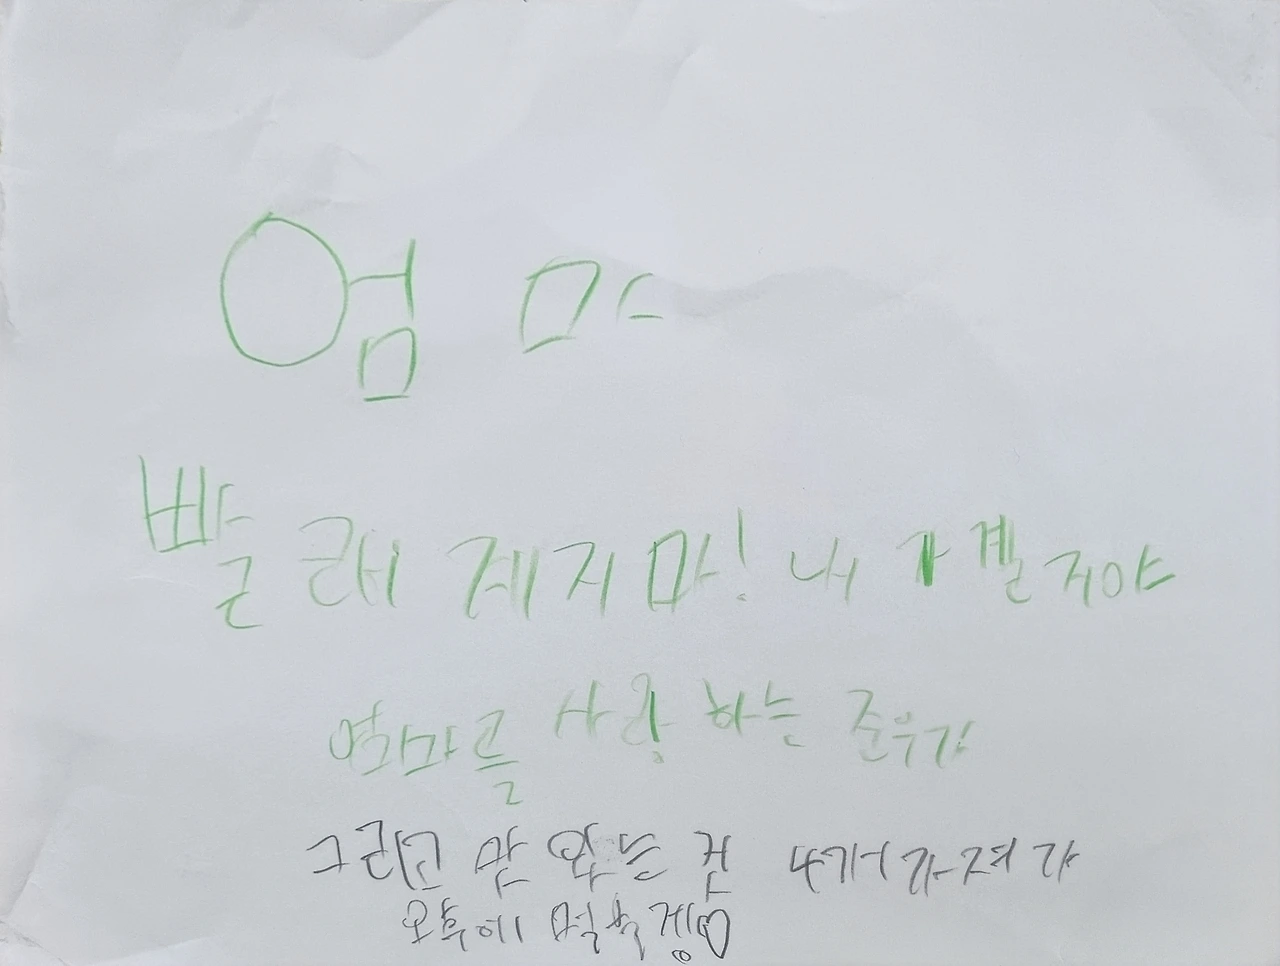 엄마
빨래 게지마! 내가 겔 거야
엄마를 사랑하는 준우가
그리고 만 않는 건 4개 가져가
오후에